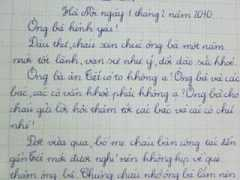 Hà Nội ngày 1 tháng 2 năm 2010.
Ông bà kính yêu!
Đầu thư, cháu xin chúc ông bà một năm
mới tốt lành, vạn sự như ý, dồi dào sức khoẻ.
Ông bà ăn Tết có to không ạ! Ông bà và các
bác, các cô vẫn khoẻ phải không ạ! Ông bà cho
cháu gửi lời hỏi thăm tới các bác và các cô chú
nhé!
Dịp vừa qua, bố mẹ cháu bận công tác đến
gần Tết mới được nghỉ nên không kịp về quê
thăm ông bà. Chúng cháu nhớ ông bà lắm nên